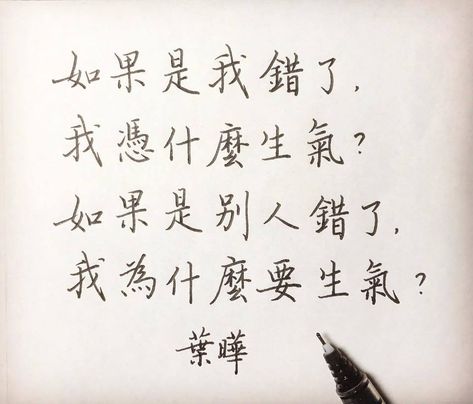 如果是我錯了,
我憑什麼生氣?
如果是別人錯了,
我為什麼要生氣?
葉曄